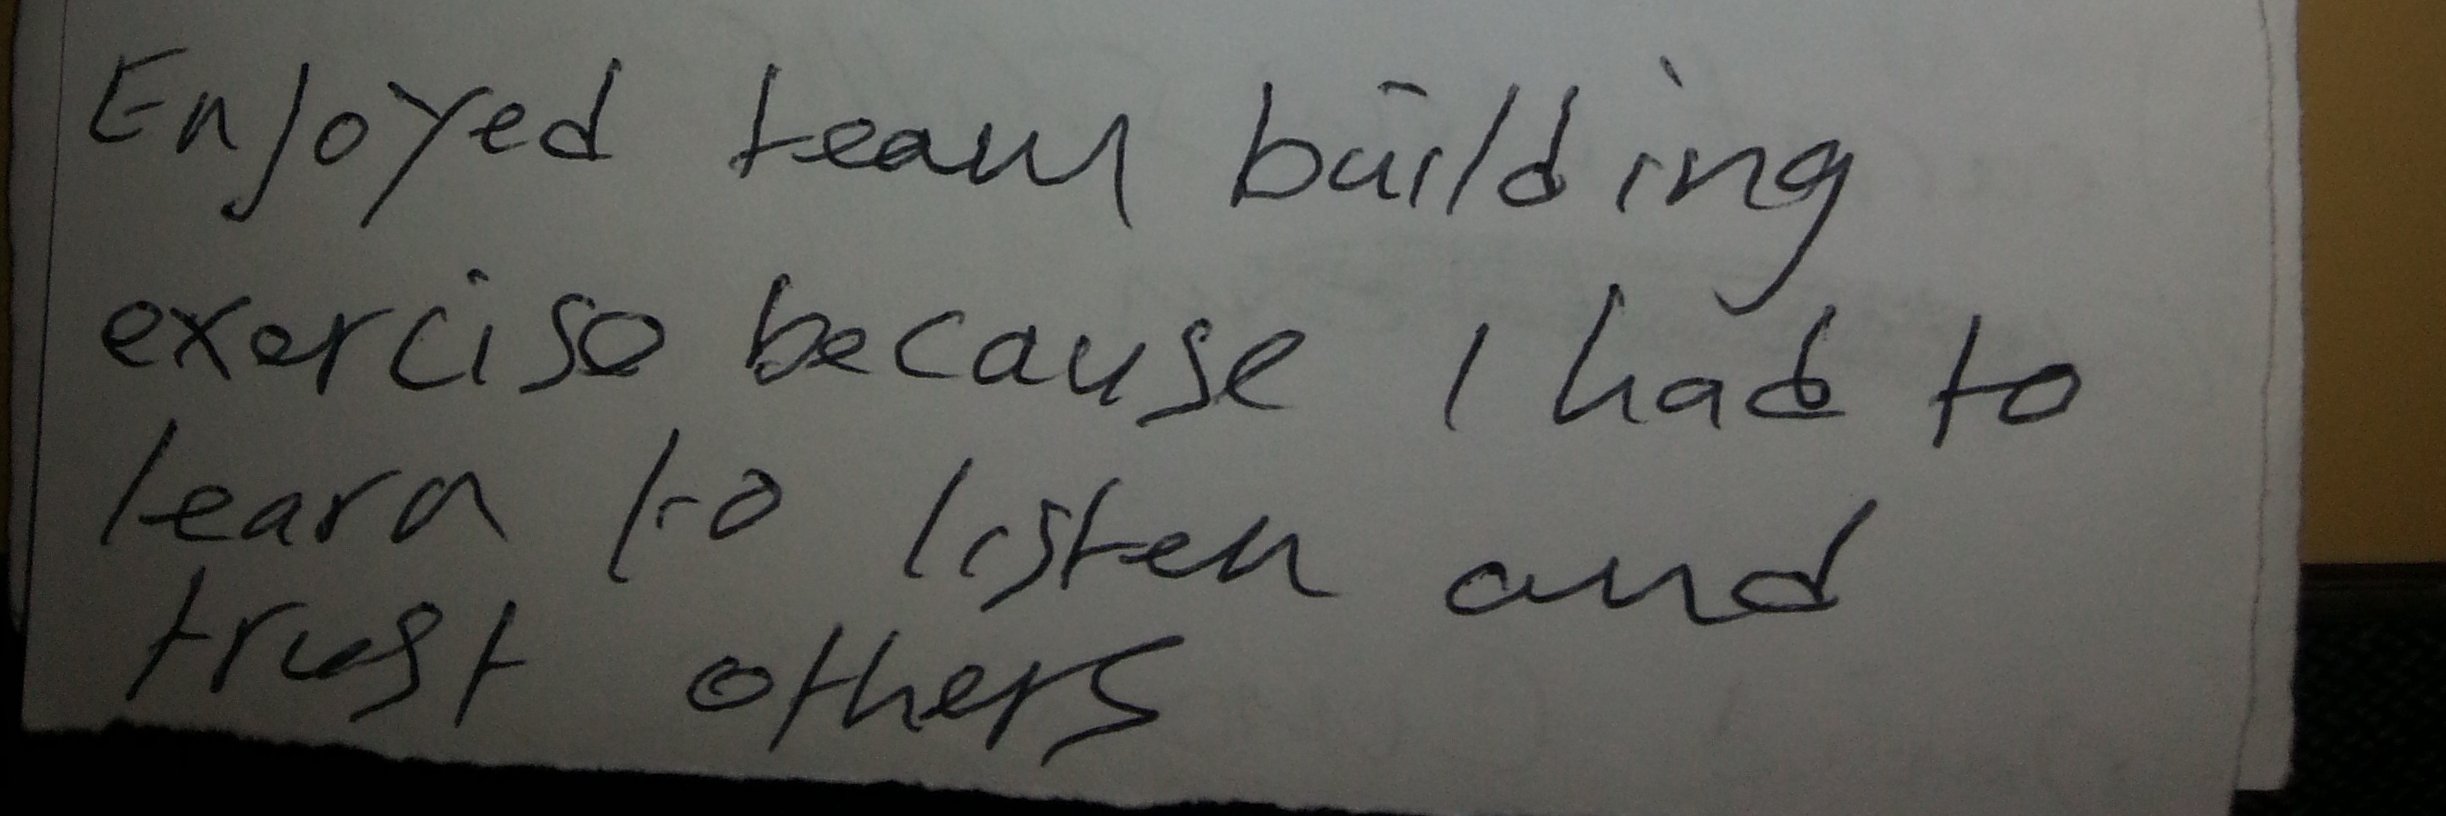 Enjoyed team building
exercise because I had to
learn to listen and
trust others